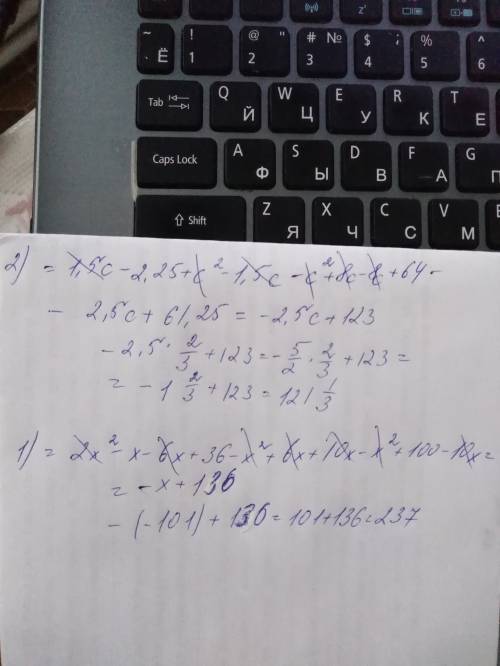 ~ ! @ " # № $ ; % ^
Ё 1 2 3 4 5 6
Tab Q W E R T
Й Ц У К Е
Caps Lock A S D F G
Ф Ы В А П
Shift Z X C V
Я Ч С М
2) = 1,5c - 2,25 + c² - 1,5c - c² + 8c - 8c + 64 -
- 2,5c + 61,25 = -2,5c + 123
-2,5 · 2/3 + 123 = -5/2 · 2/3 + 123 =
= -1 2/3 + 123 = 121 1/3
1) = 2x² - x - 6x + 36 - x² + 6x + 10x - x² + 100 - 10x =
= -x + 136
- (-101) + 136 = 101 + 136 = 237